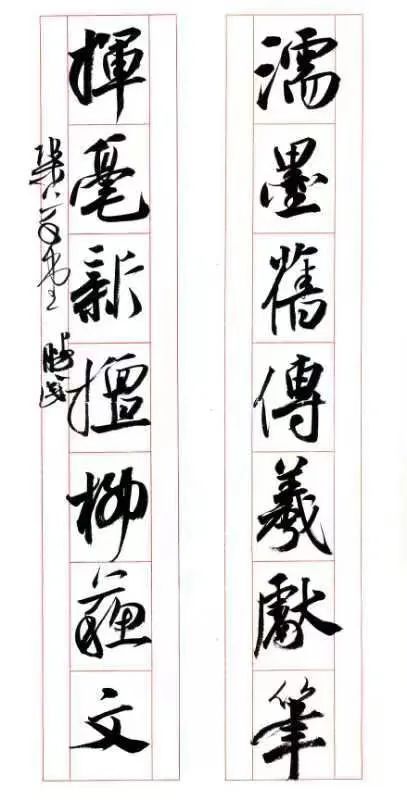 濡墨舊傳羲獻筆
揮毫新擅柳蘇文